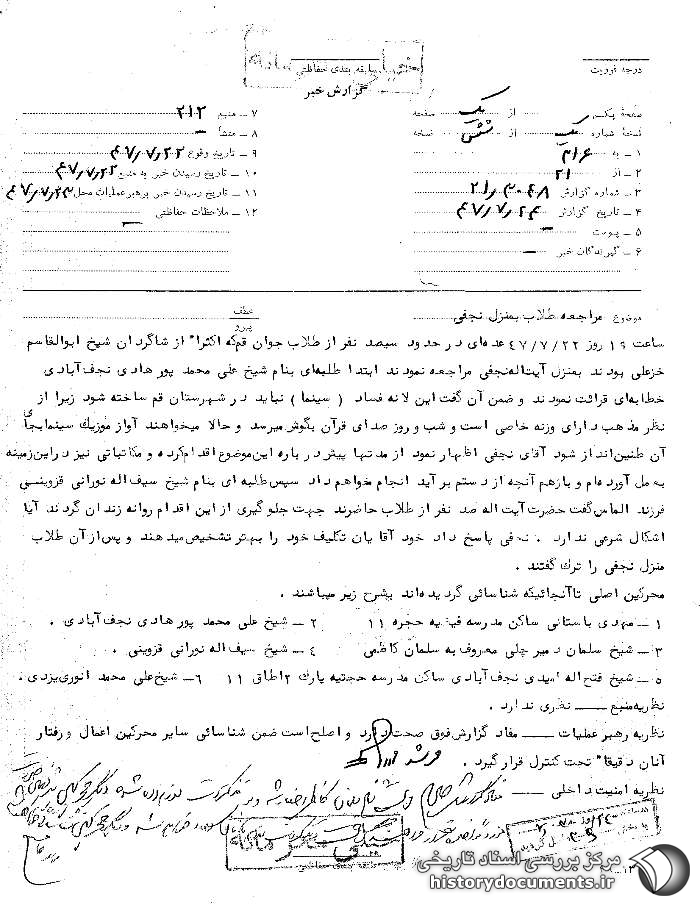 درجه فوریت
طبقه بندی حفاظتی
گزارش خبر
صفحهٔ یکم از یک صفحه
۷ ـ منبع ۲۱۲
نسخهٔ شماره یک از شش نسخه
۸ ـ منشأ ـ
۱ ـ به ۳۱۶
۹ ـ تاریخ وقوع ۴۷٫۷٫۲۲
۲ ـ از ۲۱
۱۰ ـ تاریخ رسیدن خبر به منبع ۴۷٫۷٫۲۲
۳ ـ شماره گزارش
۱۱ ـ تاریخ رسیدن خبر برهبر عملیات محل ۴۷٫۷٫۲۳
۴ ـ تاریخ گزارش ۴۷٫۷٫۲۴
۱۲ ـ ملاحظات حفاظتی ـ
۵ ـ پیوست ـ
۶ ـ گیرندگان خبر ـ
موضوع مراجعه طلاب بمنزل نجفی
عطف
پیرو
ساعت ۱۹ روز ۴۷/۷/۲۲ عده‌ای در حدود سیصد نفر از طلاب جوان قم که اکثرا" از شاگردان شیخ ابوالقاسم
خزعلی بودند بمنزل آیت‌اله نجفی مراجعه نمودند ابتدا طلبه‌ای بنام شیخ علی محمد پور هادی نجف‌آبادی
خطابه‌ای قرائت نمودند و ضمن آن گفت این لانه فساد ( سینما ) نباید در شهرستان قم ساخته شود زیرا از
نظر مذهب دارای وزنه خاصی است و شب و روز صدای قرآن بگوش میرسد و حالا میخواهند آواز موزیک سینما بجای
آن طنین‌انداز شود آقای نجفی اظهار نمود از مدتها پیش در باره این موضوع اقدام کرده و مکاتباتی نیز در این زمینه
به عمل آورده‌ام و بازهم آنچه از دستم بر آید انجام خواهم داد سپس طلبه ای بنام شیخ سیف‌اله نورانی قزوینی
فرزند الماس گفت حضرت آیت اله صد نفر از طلاب حاضرند جهت جلوگیری از این اقدام روانه زندان گردند آیا
اشکال شرعی ندارد . نجفی پاسخ داد خود آقایان تکلیف خود را بهتر تشخیص میدهند و پس از آن طلاب
منزل نجفی را ترک گفتند .
محرکین اصلی تا آنجائیکه شناسائی گردیده‌اند بشرح زیر میباشند .
۱ ـ مهدی باستانی ساکن مدرسه فیضیه حجره ۱۱ ۲ ـ شیخ علی محمد پور هادی نجف‌آبادی .
۳ ـ شیخ سلمان دمیرچلی معروف به سلمان کاظمی ۴ ـ شیخ سیف اله نورانی قزوینی .
۵ ـ شیخ فتح‌اله امیدی نجف‌آبادی ساکن مدرسه حجتیه پارک ۲ اطاق ۱۱ ۶ ـ شیخ علی محمد انوری یزدی .
نظریه منبع ـــ نظری ندارد .
نظریه رهبر عملیات ـــ مفاد گزارش فوق صحت دارد و اصلح است ضمن شناسائی سایر محرکین اعمال و رفتار
آنان دقیقا" تحت کنترل قرار گیرد .
نظریه امنیت داخلی ـــ
طبقه بندی حفاظتی
مرکز بررسی اسناد تاریخی
historydocuments.ir